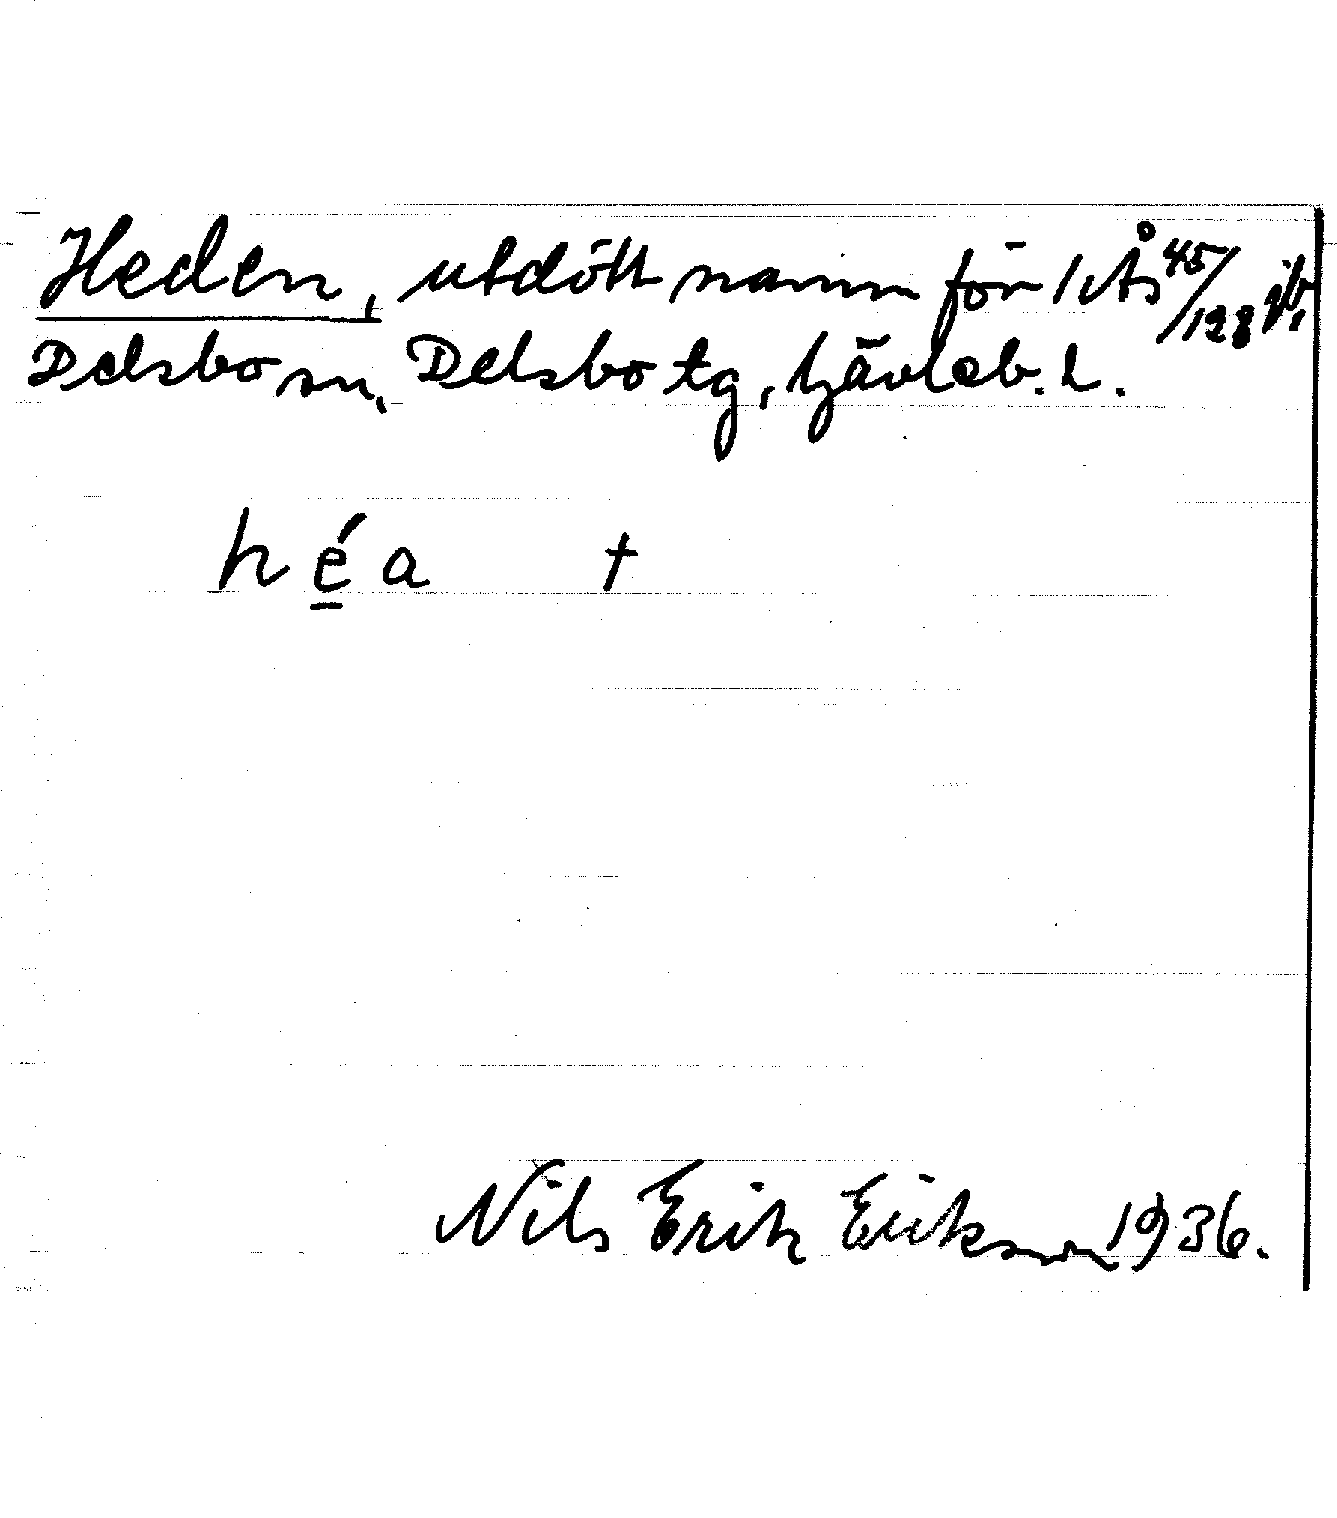 Heden, utdött namn för 1 Ås 45/128 jb,
Delsbo sn, Delsbo tg, Gävleb. l.
héa †
Nils Erik Erikson 1936.